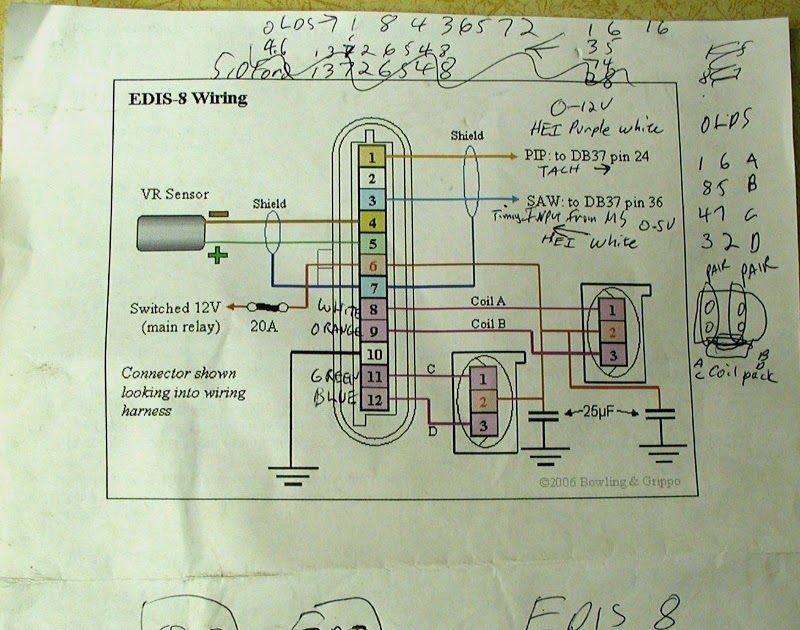 OLDS→ 1 8 4 3 6 5 7 2
1 6
16
4.6 1 3 7 2 6 5 4 8
3 5
5.0 Ford 1 3 7 2 6 5 4 8
7 4
2 8
EDIS-8 Wiring
0-12V
HEI Purple white
OLDS
Shield
1
PIP: to DB37 pin 24
TACH →
1 6 A
2
VR Sensor
3
SAW: to DB37 pin 36
8 5 B
Shield
4
Timing INPUT from MS 0-5V
4 7 C
5
HEI white
3 2 D
6
PAIR PAIR
7
Switched 12V
(main relay)
20A
WHITE
8
Coil A
1
ORANGE
9
Coil B
2
10
3
A B
C D
Coil pack
Connector shown
looking into wiring
harness
GREEN
11
C
1
BLUE
12
2
D
3
25µF
©2006 Bowling & Grippo
EDIS 8